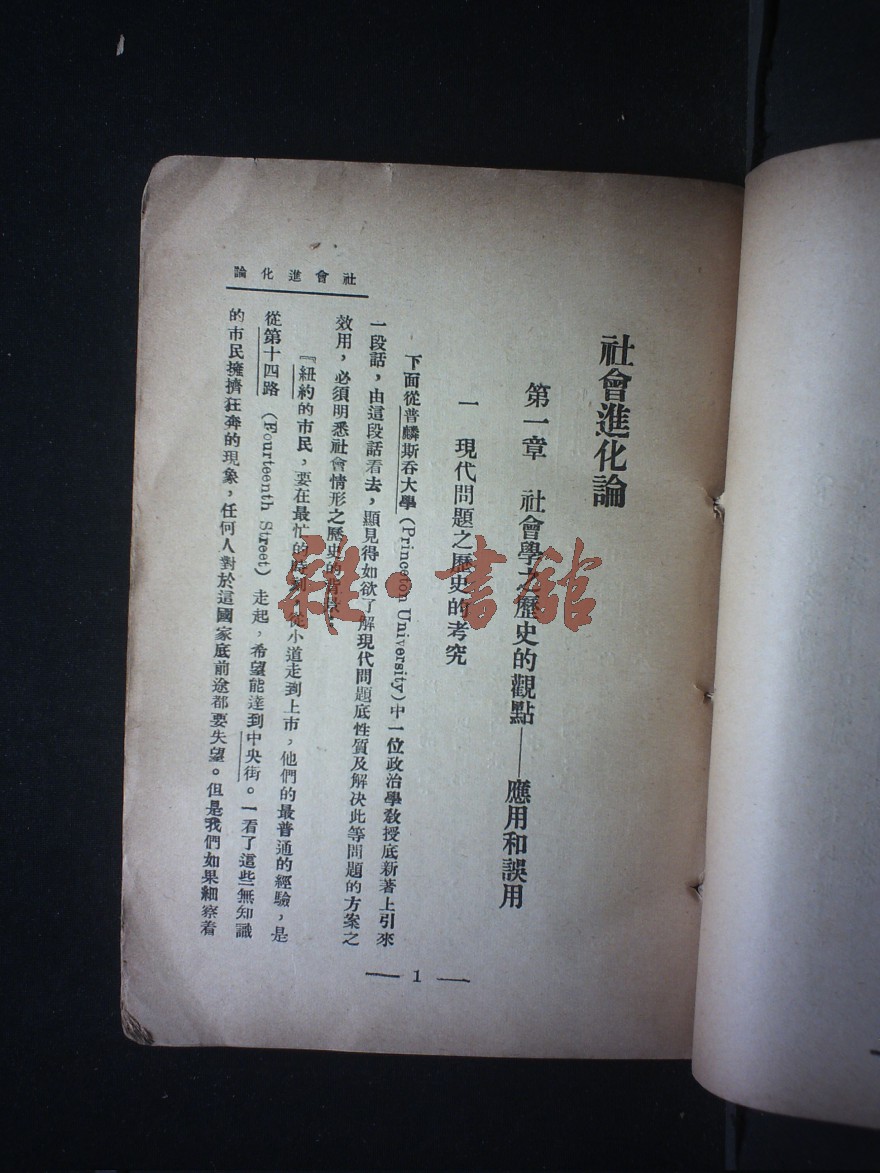 社會進化論
第一章　社會學之歷史的觀點——應用和誤用
一　現代問題之歷史的考究
下面從普麟斯吞大學(Princeton University)中一位政治學教授底新著上引來
一段話，由這段話看去，顯見得如欲了解現代問題底性質及解决此等問題的方案之
效用，必須明悉社會情形之歷史的背景。
『紐約的市民，要在最忙的時刻，從小道走到上市，他們的最普通的經驗，是
從第十四路(Fourteenth Street)走起，希望能達到中央街。一看了這些無知識
的市民擁擠狂奔的現象，任何人對於這國家底前途都要失望。但是我們如果細察着
社會進化論
— 1 —
雜·書館